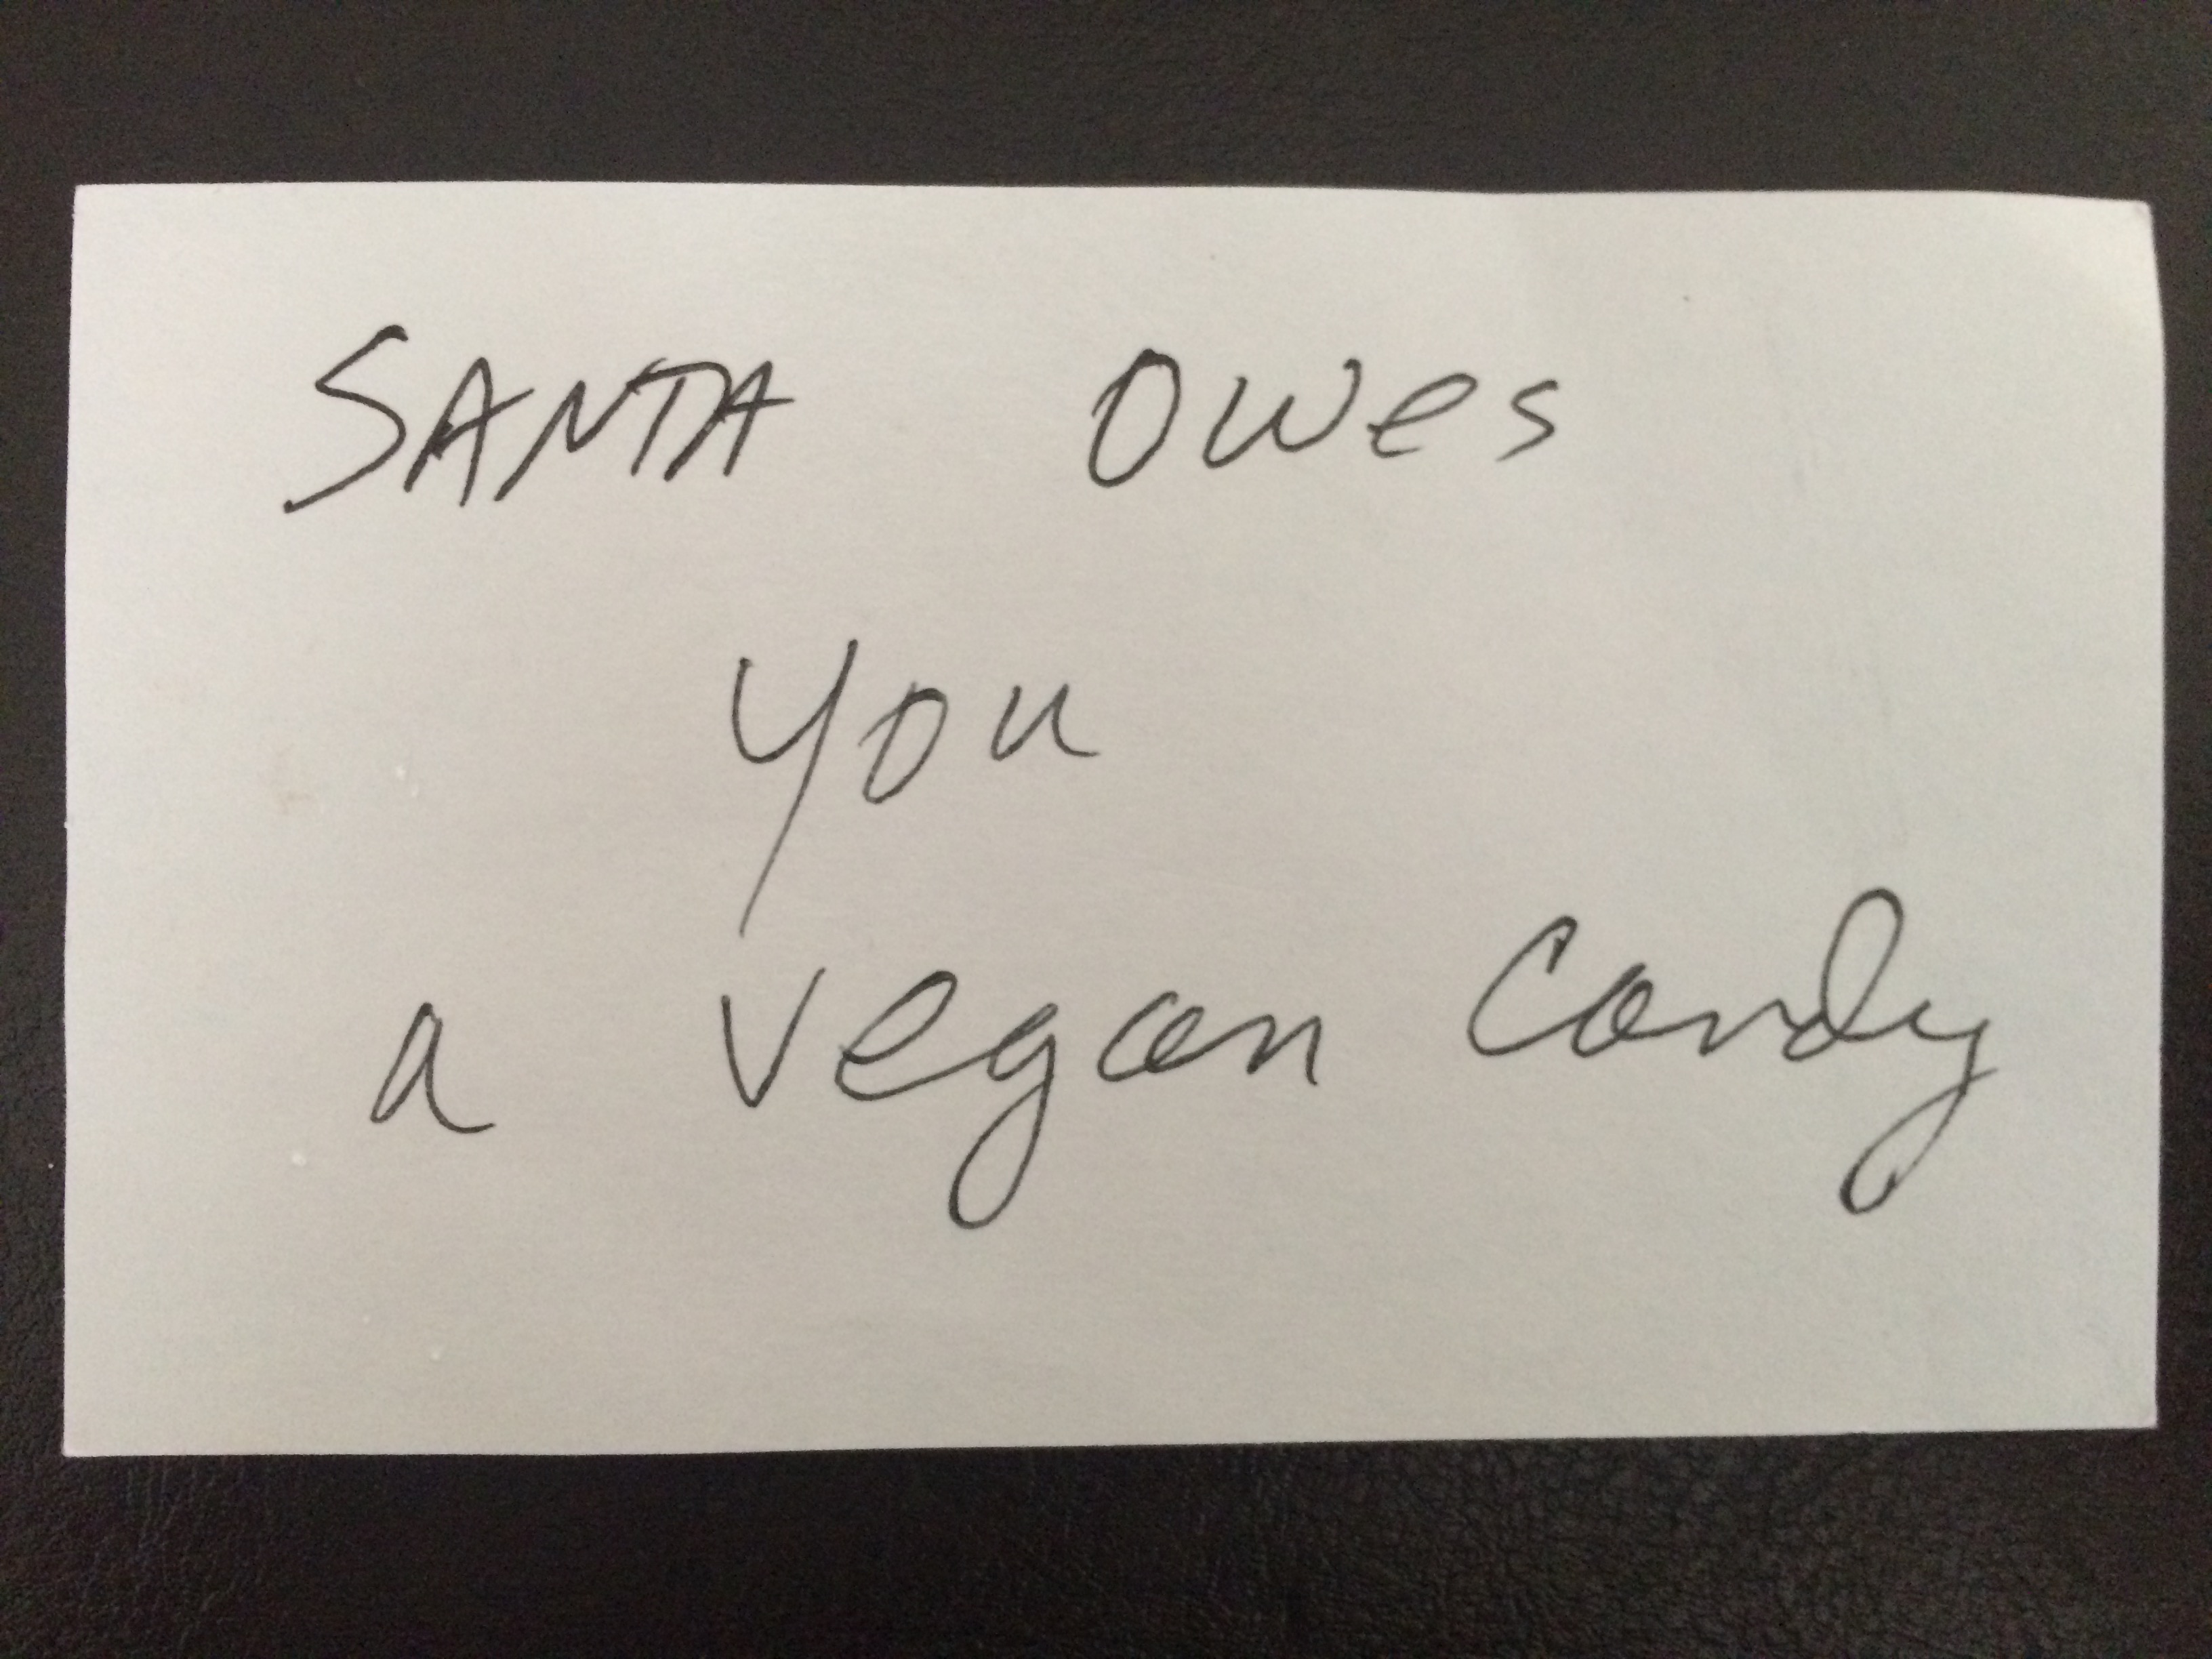 SANTA Owes
you
a vegan Candy